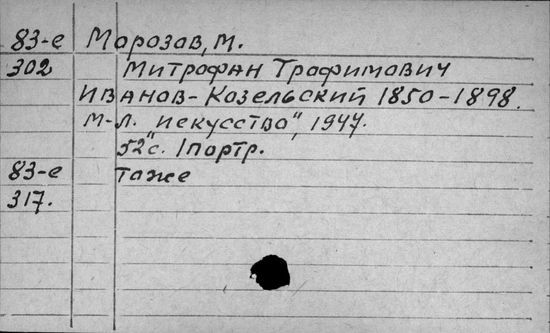 83-е Морозов, М.
302 Митрофан Трофимович
Иванов-Козельский 1850-1898.
М-Л. "Искусство", 1947.
52 с. 1 портр.
83-е Тоже
317.